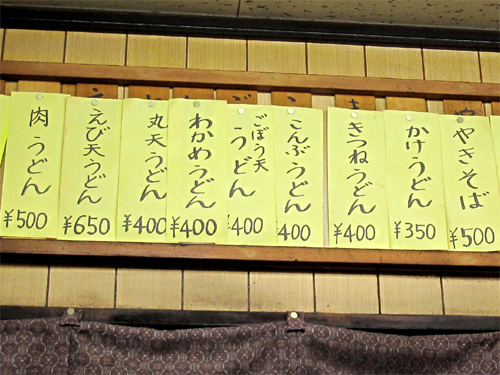 やきそば
¥500
かけうどん
¥350
きつねうどん
¥400
こんぶうどん
¥400
ごぼう天
うどん
¥400
わかめうどん
¥400
丸天うどん
¥400
えび天うどん
¥650
肉うどん
¥500